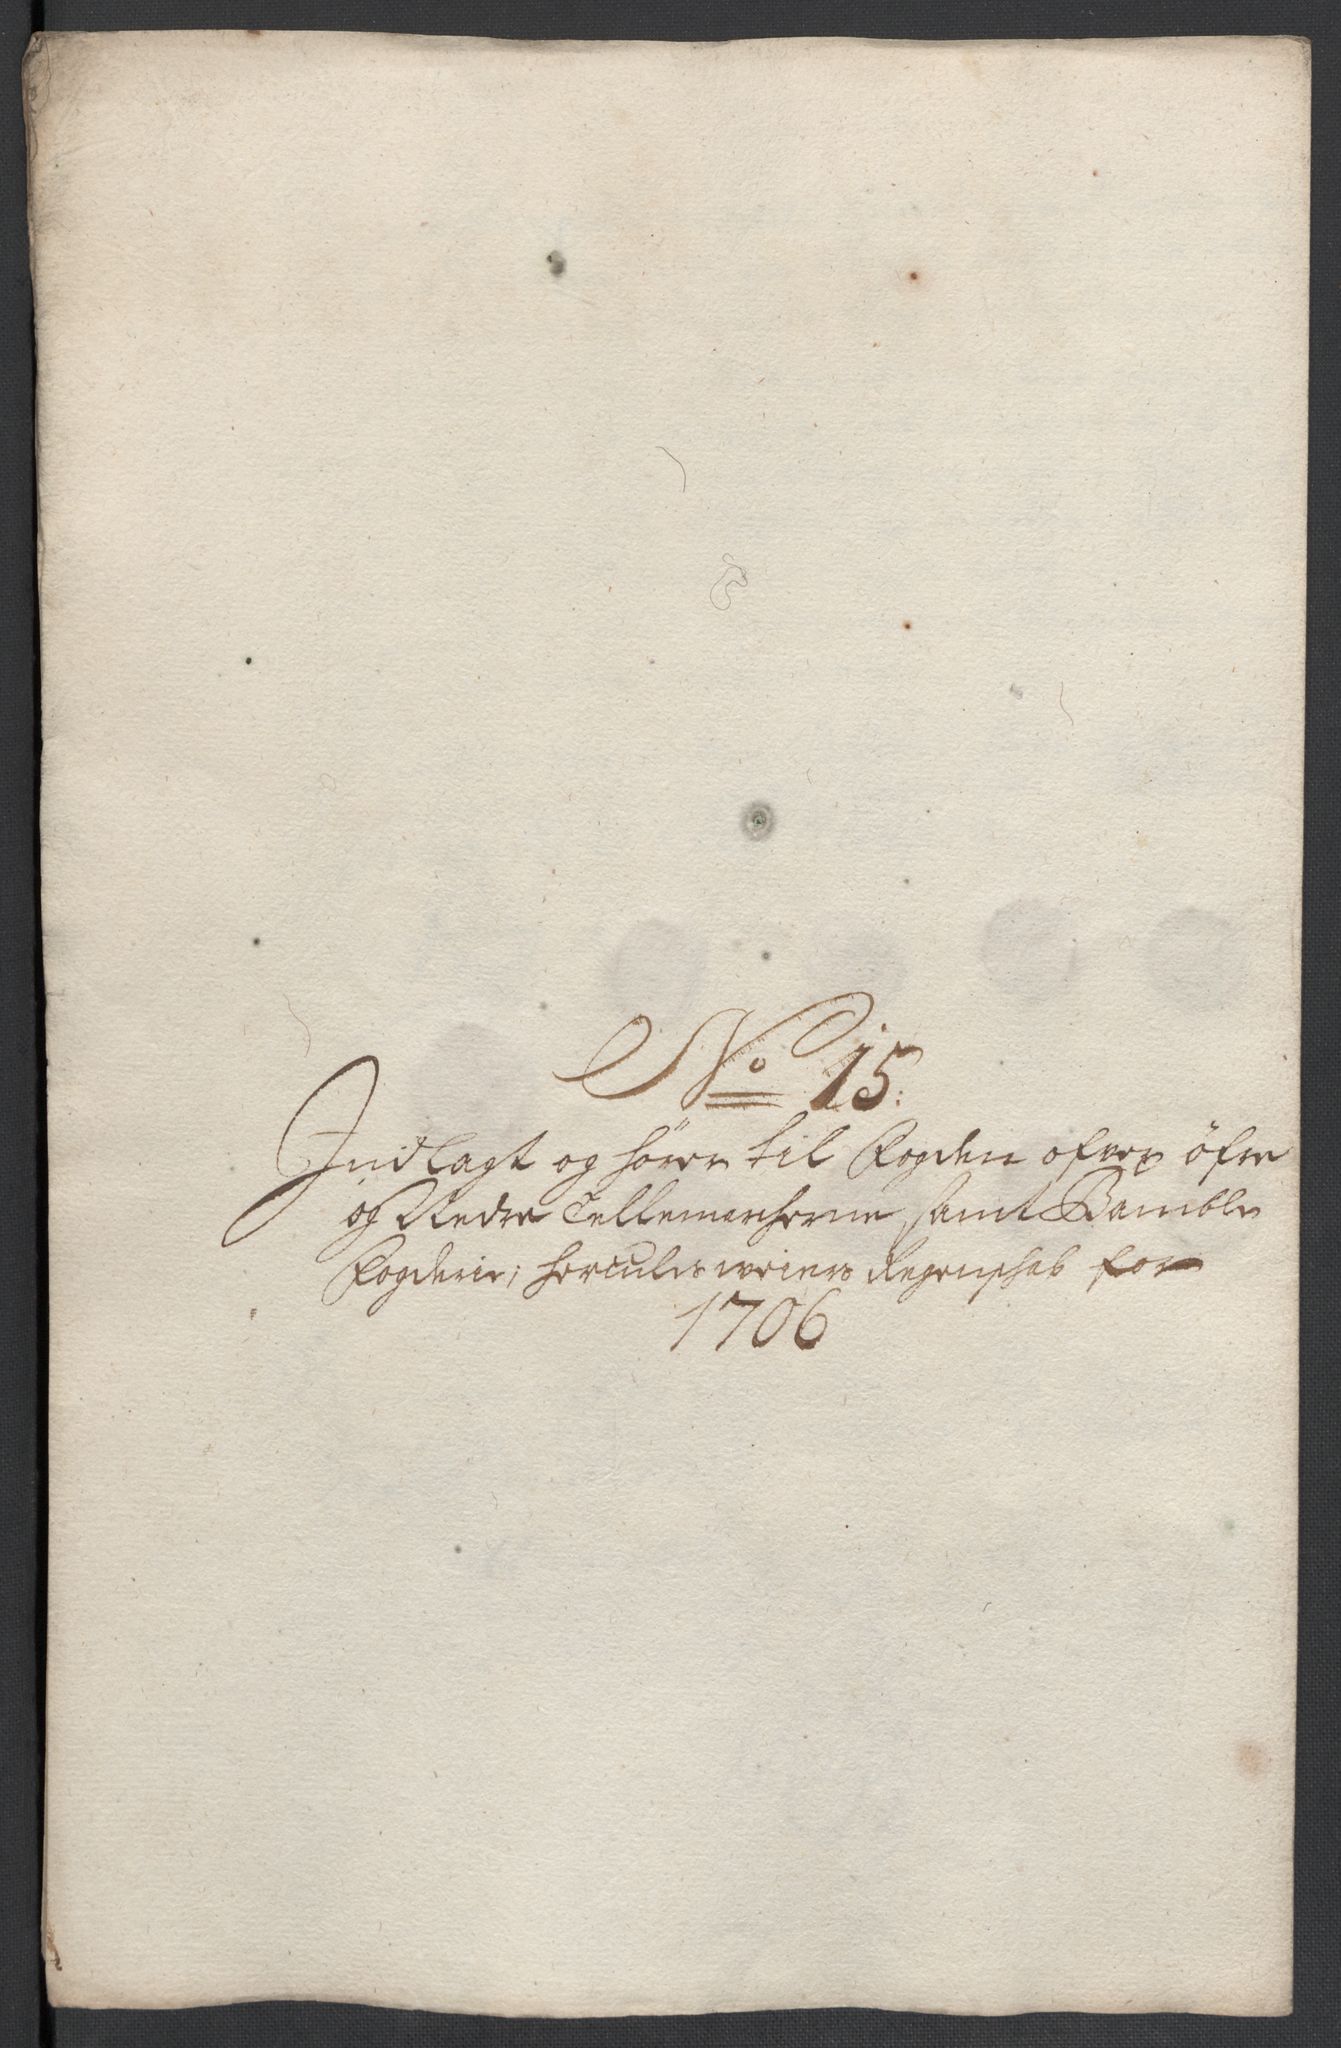 No 15.
Indlagt og hörer til Fogden ofver öfre
og Nedre Tellemarcherne, samt Bamble
Fogderie, Hercules weiers Regenschab for
1706